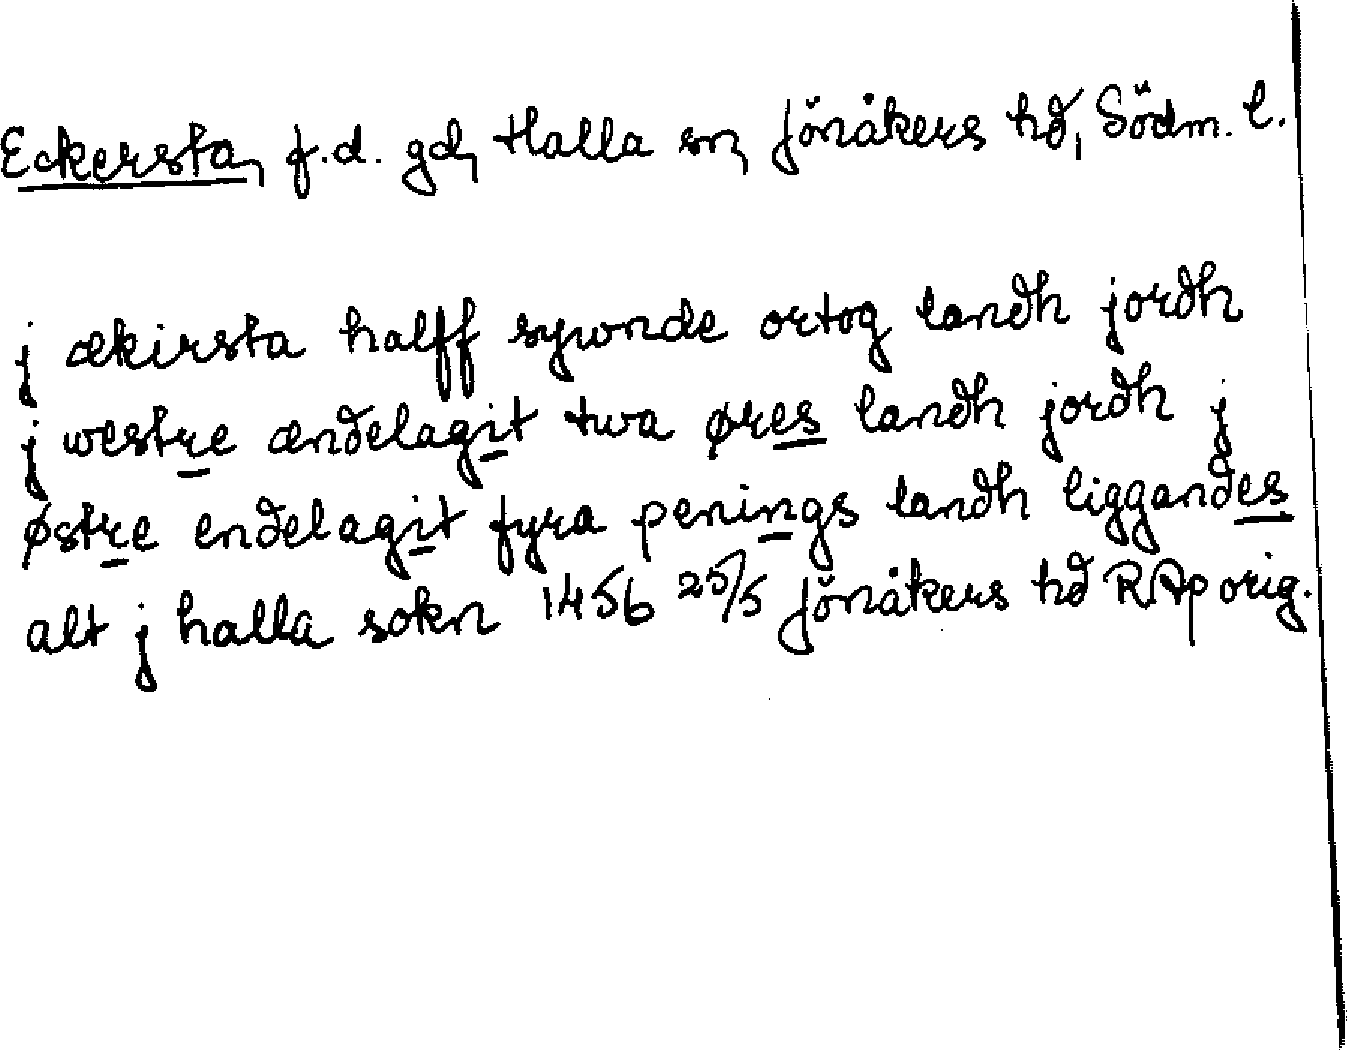 Eckersta, f.d. gd, Halla sn, Jönåkers hd, Södm. l.
j ækirsta halff sywnde ortog landh jordh
j westre ændelagit twa øres landh jordh j
østre endelagit fyra penings landh liggandes
alt j halla sokn 1456 25/5 Jönåkers hd RAp orig.